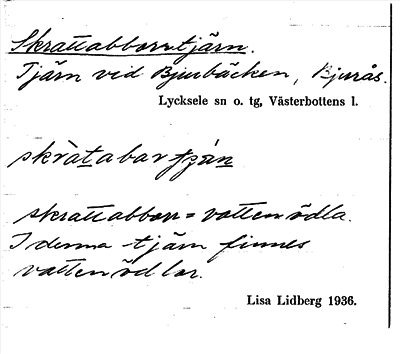 Skrattabborrtjärn.
Tjärn vid Bjurbäcken, Bjurås.
Lycksele sn o. tg, Västerbottens l.
skràtabartjän
skrattabborr = vattenödla.
I denna tjärn finnes
vattenödlor.
Lisa Lidberg 1936.